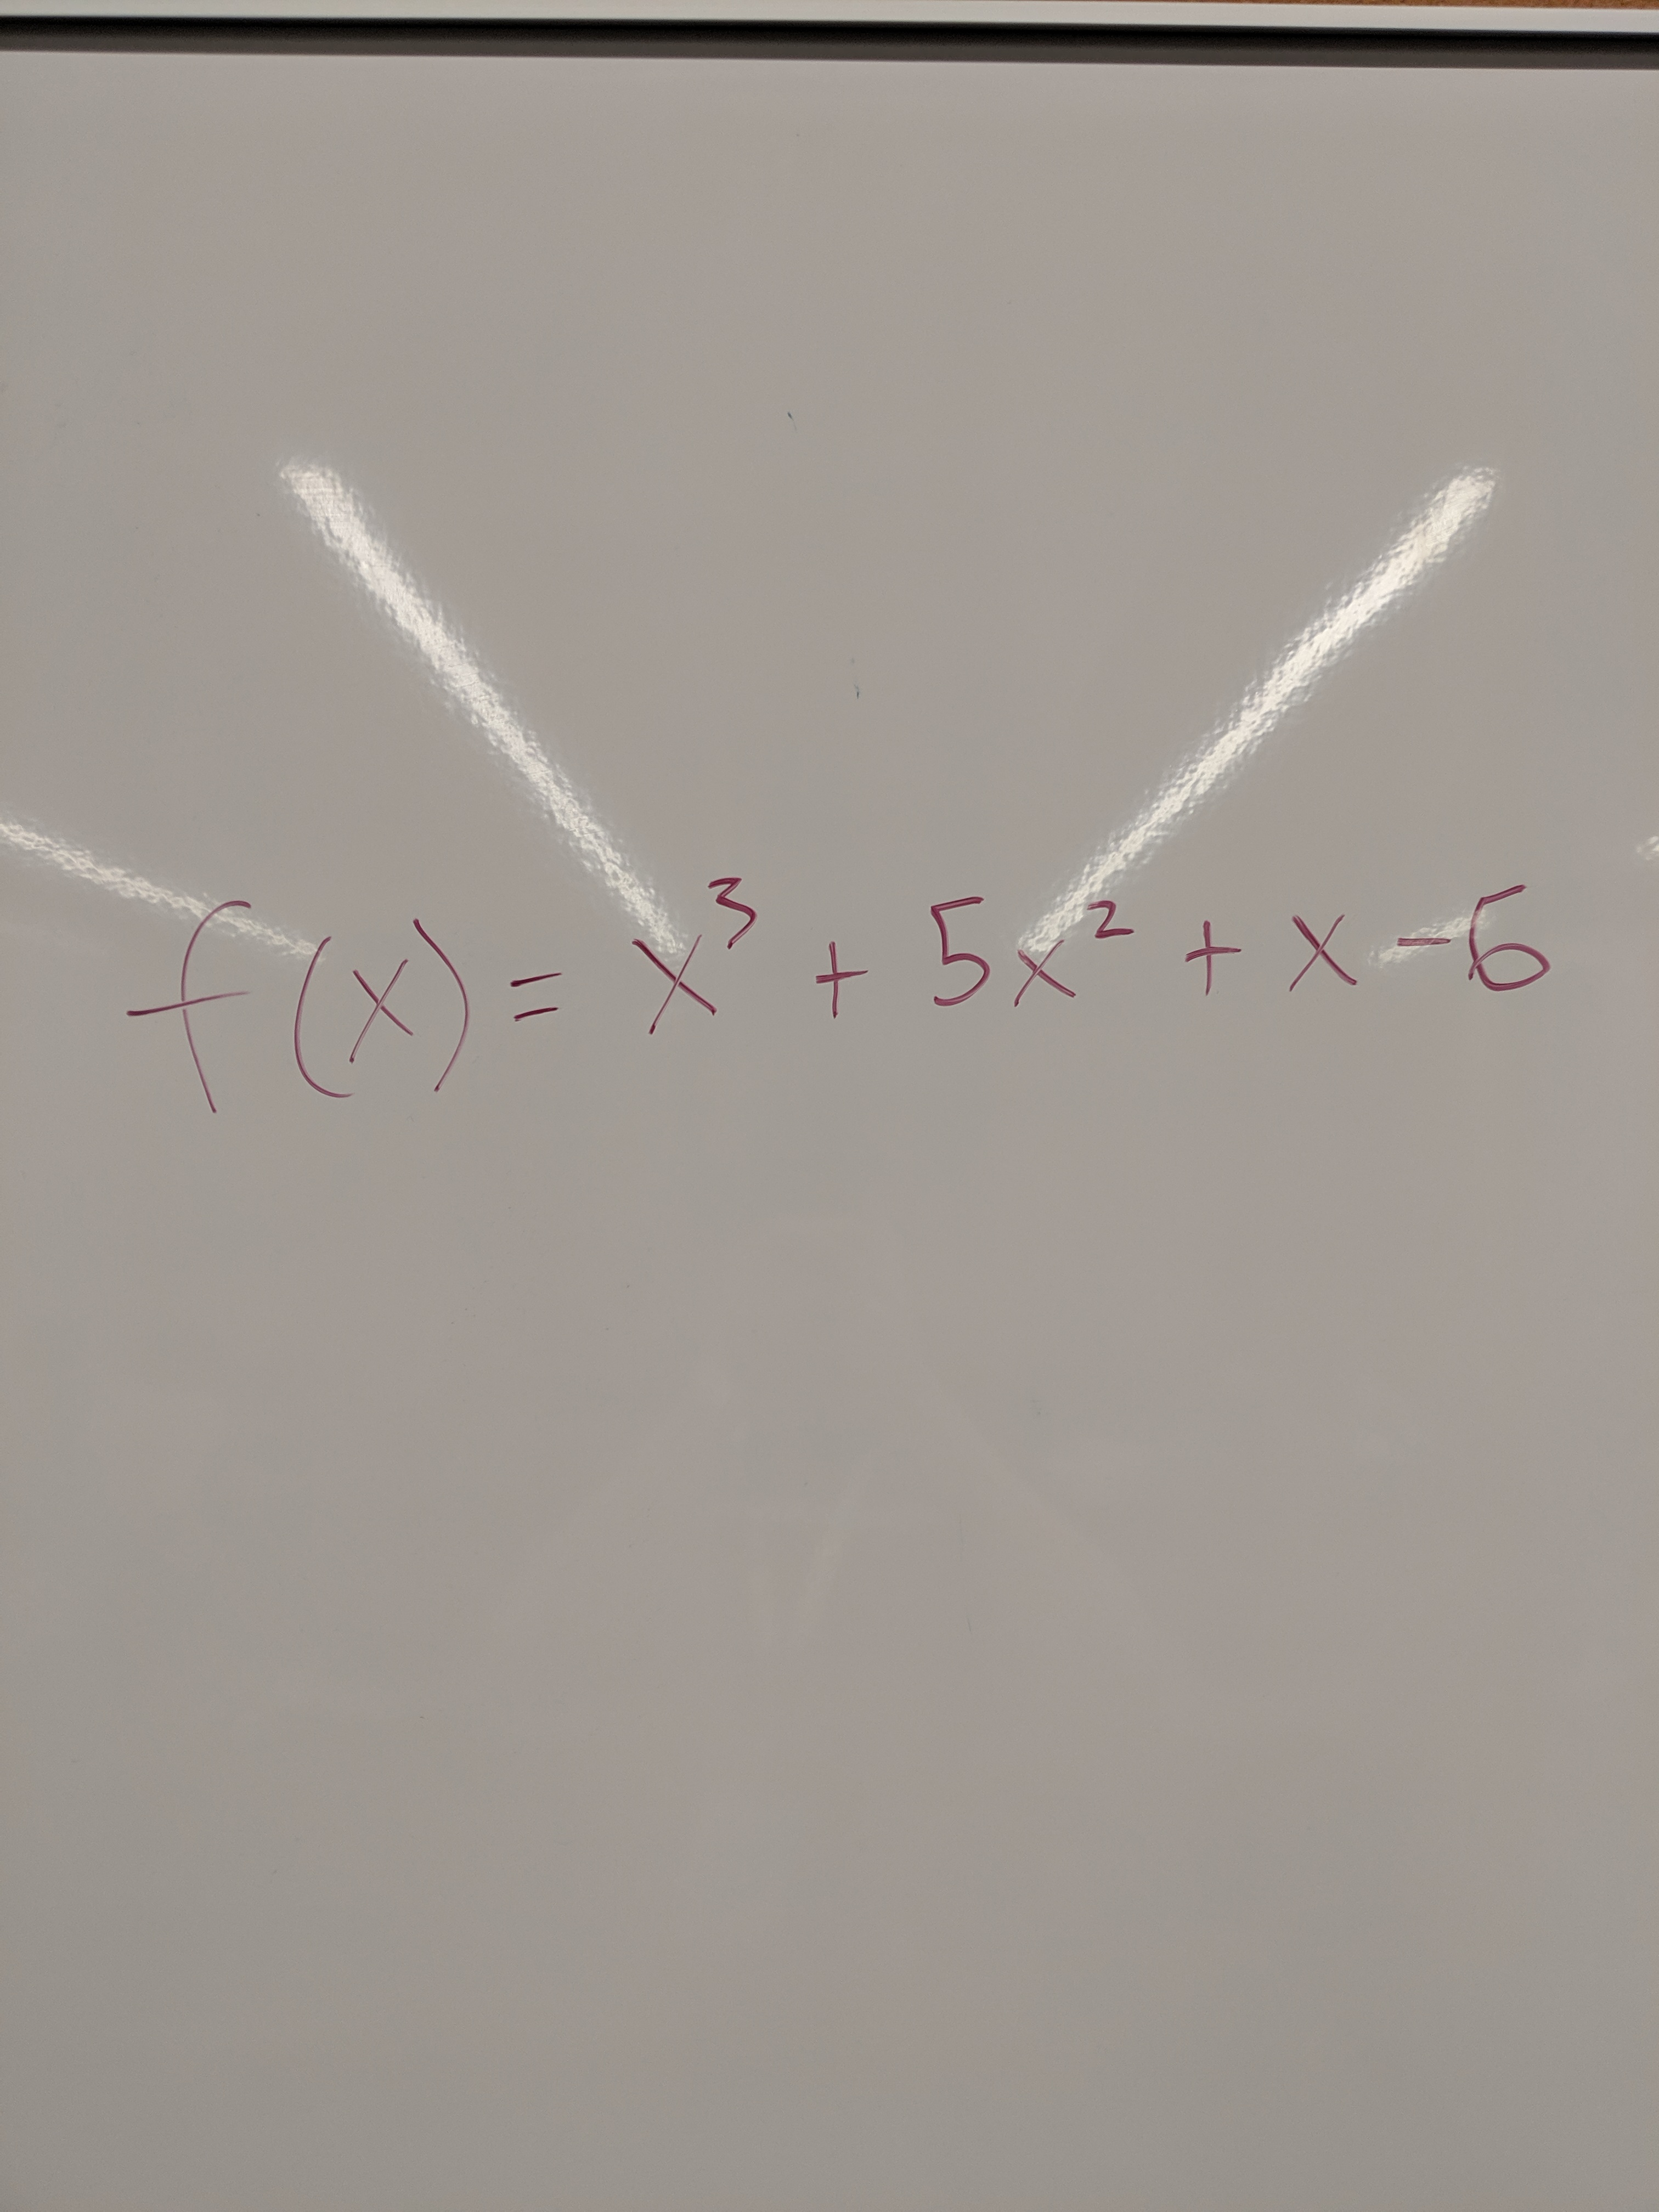 f(x) = x³ + 5x² + x - 6